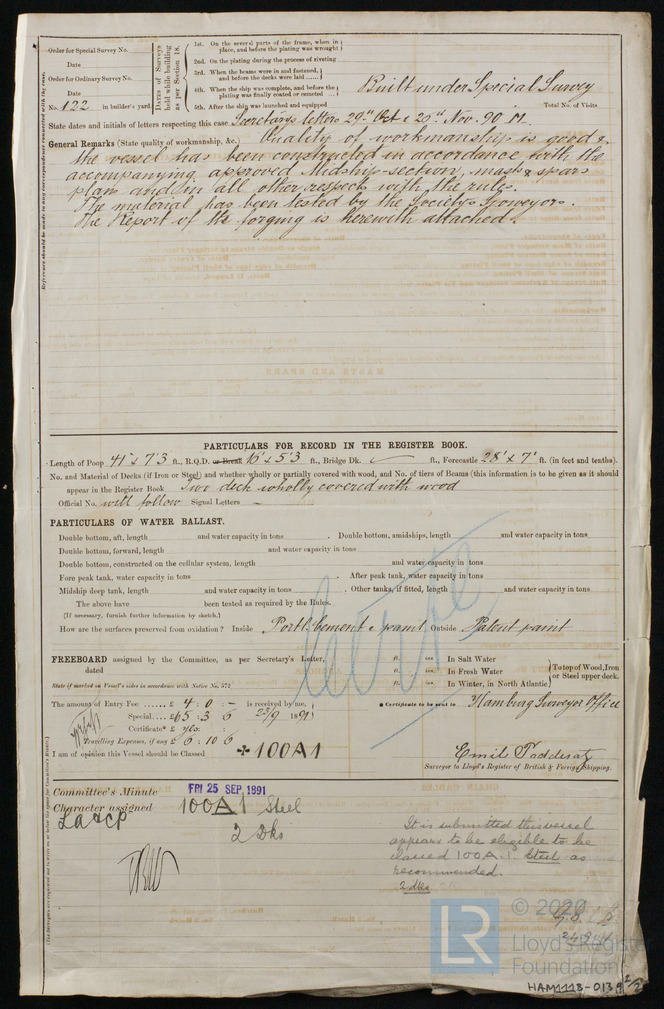 Order for Special Survey No.
Date
Order for Ordinary Survey No.
Date
No. 122 in builder's yard.
Dates of Surveys held while building as per Section 18.
1st. On the several parts of the frame, when in place, and before the plating was wrought
2nd. On the plating during the process of riveting
3rd. When the beams were in and fastened, and before the decks were laid
4th. When the ship was complete, and before the plating was finally coated or cemented
5th. After the ship was launched and equipped
Built under Special Survey
Total No. of Visits
State dates and initials of letters respecting this case Secretary's letters 29th Oct & 20th Nov. 90 M.
General Remarks (State quality of workmanship, &c.) Quality of workmanship is good &
the vessel has been constructed in accordance with the
accompanying approved Midship-section, mast & spars
plan and in all other respects with the rules.
The material has been tested by the Society's Surveyors.
The Report of the forging is herewith attached.
PARTICULARS FOR RECORD IN THE REGISTER BOOK.
Length of Poop 41' x 7'3 ft., R.Q.D. or Break 16' x 5'3 ft., Bridge Dk. ft., Forecastle 28' x 7' ft. (in feet and tenths).
No. and Material of Decks (if Iron or Steel) and whether wholly or partially covered with wood, and No. of tiers of Beams (this information is to be given as it should
appear in the Register Book Two deck wholly covered with wood
Official No. will follow Signal Letters –
PARTICULARS OF WATER BALLAST.
Double bottom, aft, length and water capacity in tons . Double bottom, amidships, length and water capacity in tons
Double bottom, forward, length and water capacity in tons
Double bottom, constructed on the cellular system, length and water capacity in tons
Fore peak tank, water capacity in tons . After peak tank, water capacity in tons
Midship deep tank, length and water capacity in tons . Other tanks, if fitted, length and water capacity in tons
The above have been tested as required by the Rules.
(If necessary, furnish further information by sketch.)
How are the surfaces preserved from oxidation? Inside Portl. Cement & paint, Outside Patent paint
FREEBOARD assigned by the Committee, as per Secretary's Letter, dated
ft. ins. In Salt Water
ft. ins. In Fresh Water
ft. ins. In Winter, in North Atlantic
To top of Wood, Iron or Steel upper deck.
State if marked on Vessel's sides in accordance with Notice No. 572
The amount of Entry Fee £ 4 : 0 : – is received by me,
Special £ 65 : 3 : 6 23/9 1891
Certificate* £ yes :
Travelling Expenses, if any £ 6 : 10 6
* Certificate to be sent to Hamburg Surveyor Office
I am of opinion this Vessel should be Classed ✠ 100A1
Emil Padderatz
Surveyor to Lloyd's Register of British & Foreign Shipping.
Committee's Minute FRI 25 SEP. 1891
Character assigned 100A1 Steel
LA&CP
2 Dks
It is submitted this vessel
appears to be eligible to be
classed 100A.1. Steel as
recommended.
2 dks
LR
© 2020
Lloyd's Register
Foundation
HAM1118-0139 2/2